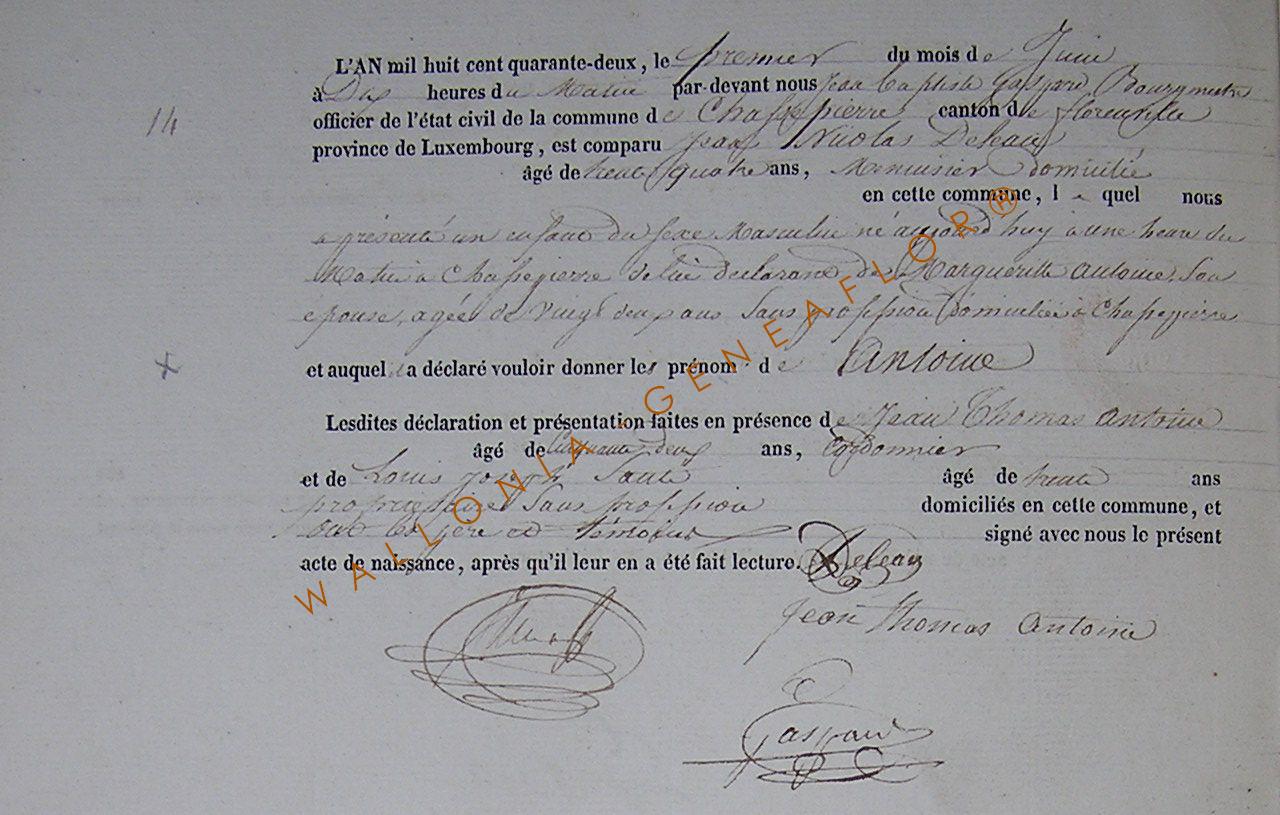 L'AN mil huit cent quarante-deux, le premier du mois de Juin
à Dix heures du Matin par-devant nous Jean Baptiste Gaspard Bourgmestre
14
officier de l'état civil de la commune de Chassepierre canton de florenville
province de Luxembourg, est comparu Jean Nicolas Deleau
âgé de trente quatre ans, Menuisier domicilié
en cette commune, l e quel nous
a présenté un enfant du sexe Masculin né aujourd'huy à une heure du
Matin à Chassepierre de lui déclarant de Marguerite Antoine, Son
épouse, agée de Vingt deux ans Sans profession domiciliée à Chassepierre
X
et auquel il a déclaré vouloir donner les prénom de Antoine
Lesdites déclaration et présentation faites en présence de Jean Thomas Antoine
âgé de Cinquante deux ans, Cordonnier
et de Louis Joseph âgé de trente ans
propriétaire Sans profession domiciliés en cette commune, et
ont les père et témoins signé avec nous le présent
acte de naissance, après qu'il leur en a été fait lecture. Deleau
Jean thomas antoine
Gaspard
WALLONIA-GENEAFLOR®